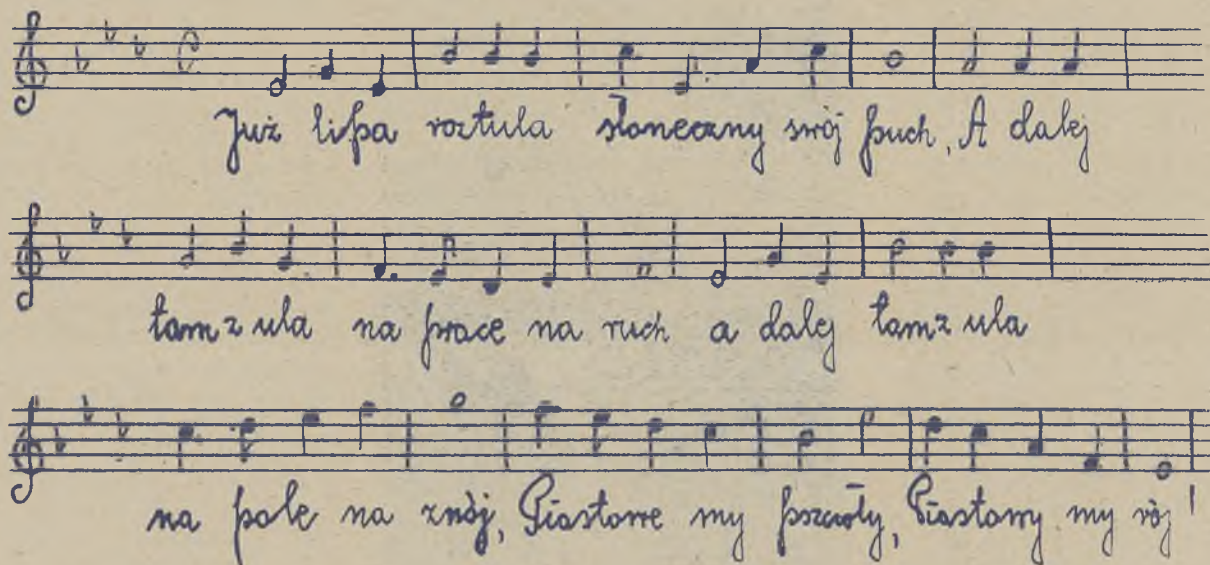 Już lipa roztula słoneczny swój puch, A dalej
tam z ula na prace na ruch a dalej tam z ula
na pole na znój, Piastowe my pszczoły, Piastowy my rój!